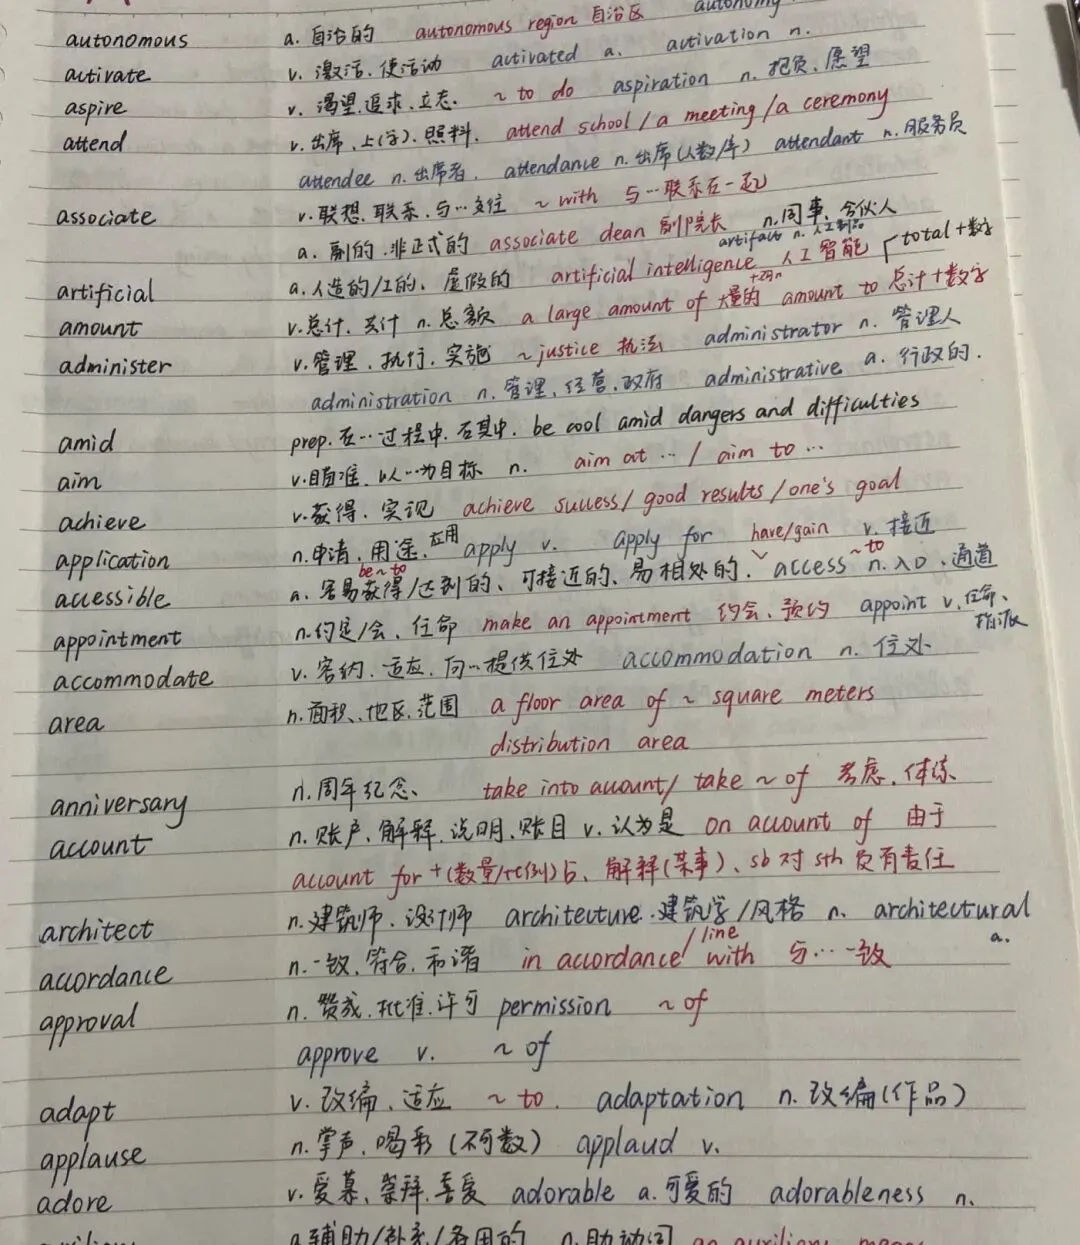 autonomous a. 自治的 autonomous region 自治区 autonomy
activate v. 激活、使活动 activated a. activation n.
aspire v. 渴望、追求、立志. ~ to do aspiration n. 抱负、愿望
attend v. 出席、上(学)、照料. attend school / a meeting / a ceremony
attendee n. 出席者. attendance n. 出席(人数/率) attendant n. 服务员
associate v. 联想、联系、与…交往 ~ with 与…联系在一起
a. 副的、非正式的 associate dean 副院长 n. 同事、合伙人
artifact n. 人工制品
artificial a. 人造的/工的、虚假的 artificial intelligence 人工智能 total + 数字
amount v. 总计、共计 n. 总额 a large amount of 大量的 amount to 总计 + 数字
administer v. 管理、执行、实施 ~ justice 执法 administrator n. 管理人
administration n. 管理、经营、政府 administrative a. 行政的.
amid prep. 在…过程中、在其中. be cool amid dangers and difficulties
aim v. 瞄准、以…为目标 n. aim at … / aim to …
achieve v. 获得、实现 achieve success / good results / one's goal
application n. 申请、用途、应用 apply v. apply for have/gain v. 接近
be ~ to ~ to
accessible a. 容易获得/达到的、可接近的、易相处的. access n. 入口、通道
appointment n. 约定/会、任命 make an appointment 约会、预约 appoint v. 任命、指派
accommodate v. 容纳、适应、向…提供住处 accommodation n. 住处
area n. 面积、地区、范围 a floor area of ~ square meters
distribution area
anniversary n. 周年纪念、 take into account / take ~ of 考虑、体谅
account n. 账户、解释、说明、账目 v. 认为是 on account of 由于
account for + (数量/比例) 占、解释(某事)、sb 对 sth 负有责任
architect n. 建筑师、设计师 architecture. 建筑学/风格 n. architectural a.
accordance n. 一致、符合、和谐 in accordance / line with 与…一致
approval n. 赞成、批准、许可 permission ~ of
approve v. ~ of
adapt v. 改编、适应 ~ to. adaptation n. 改编(作品)
applause n. 掌声、喝彩 (不可数) applaud v.
adore v. 爱慕、崇拜、喜爱 adorable a. 可爱的 adorableness n.
a. 辅助/补充/备用的 n. 助动词